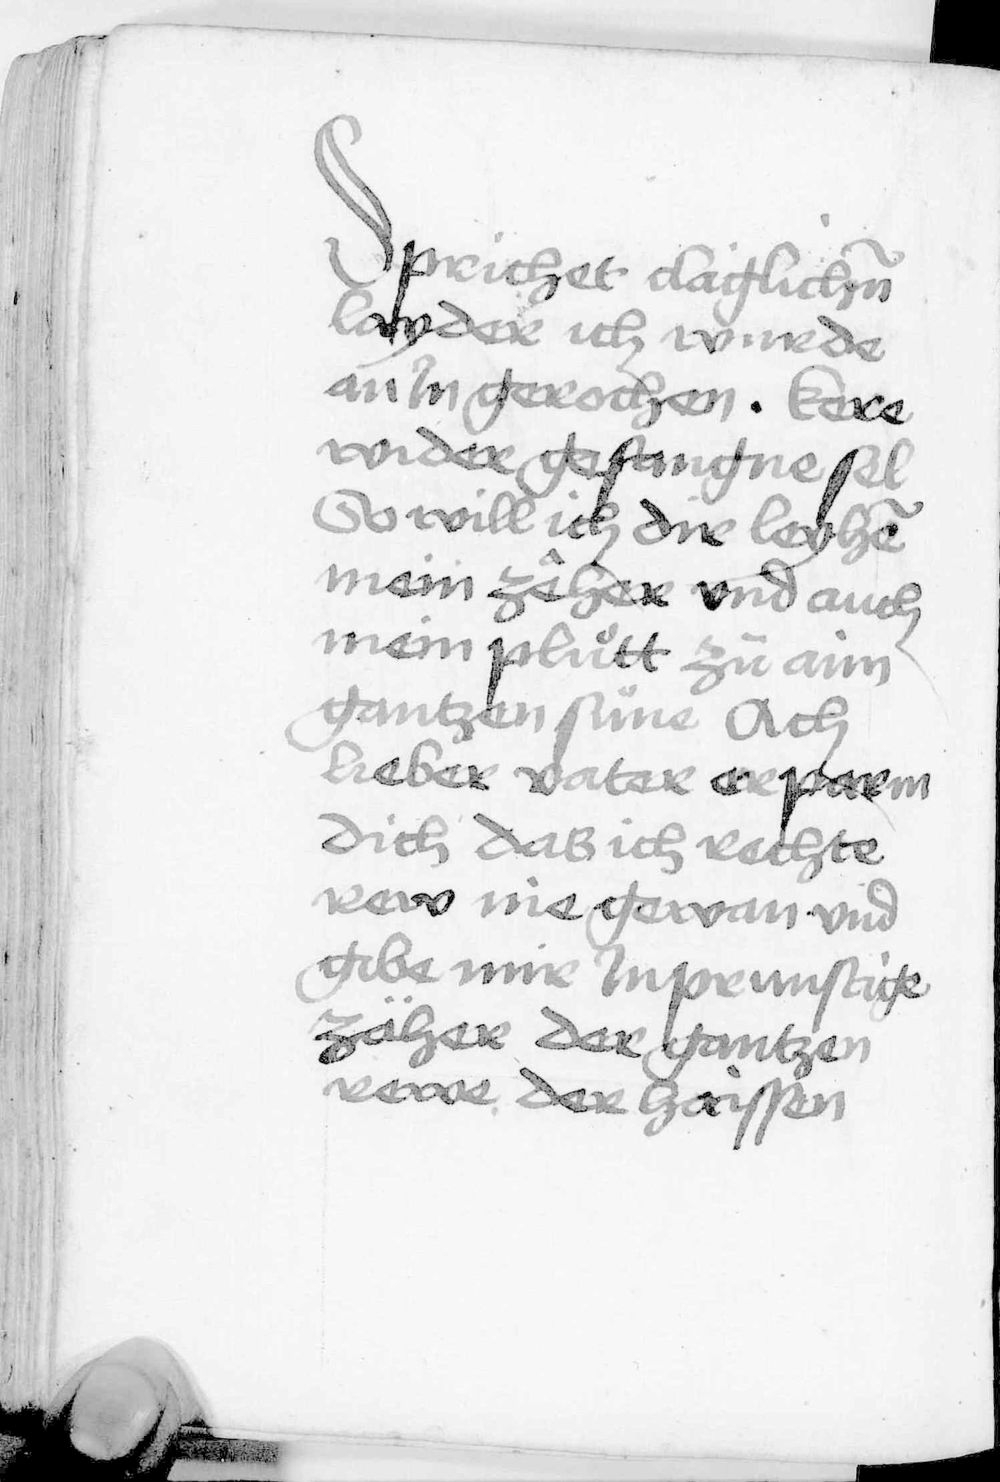 Sprichet cläglichn̄
layder ich wurde
an In gerochen . kere
wider gefangne sel
So will ich dir leyhē
mein zêher vnd auch
mein plůtt zů aim
gantzen süne Ach
lieber vater erparm
dich das ich rechte
rew nie gewan vnd
gibe mir Inprunstige
zäher der gantzen
rewe der haissen